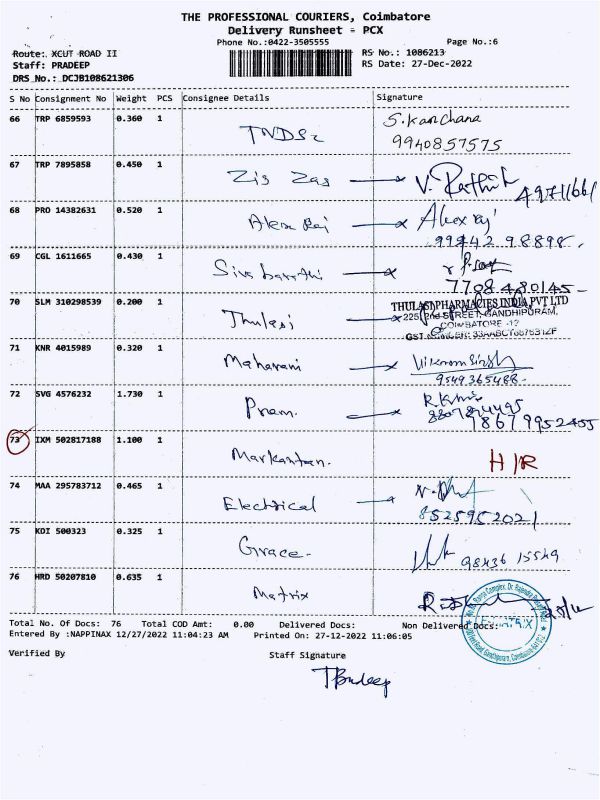 THE PROFESSIONAL COURIERS, Coimbatore
Delivery Runsheet - PCX
Phone No.:0422-3505555 Page No.:6
Route: XCUT ROAD II RS No.: 1086213
Staff: PRADEEP RS Date: 27-Dec-2022
DRS No.: DCJB108621306
S No Consignment No Weight PCS Consignee Details Signature
66 TRP 6859593 0.360 1 TNDSC S.Kanchana
9940857575
67 TRP 7895858 0.450 1 Zis Zas V. Rathik
68 PRO 14382631 0.520 1 Alex Raj Alex raj
99942 98898.
69 CGL 1611665 0.430 1 Siva barathi
7708480145-
70 SLM 310298539 0.200 1 Thulasi THULASI PHARMACIES INDIA PVT LTD
225, 2nd STREET, GANDHIPURAM,
COIMBATORE -12
71 KNR 4015989 0.320 1 Maharani Vikram Singh
9549365488-
72 SVG 4576232 1.730 1 Pram.
73 IXM 502817188 1.100 1 Markantan. H/R
74 MAA 295783712 0.465 1 Electrical
8525952021
75 KDI 500323 0.325 1 Grace- 98436 15549
76 HRD 50207810 0.635 1 Matrix
Total No. Of Docs: 76 Total COD Amt: 0.00 Delivered Docs: Non Delivered Docs:
Entered By :NAPPINAX 12/27/2022 11:04:23 AM Printed On: 27-12-2022 11:06:05
Verified By Staff Signature